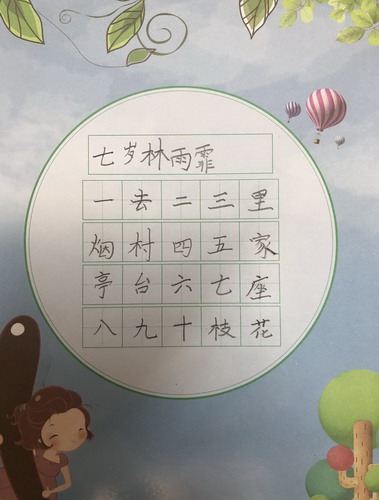 七岁林雨霏
一去二三里
烟村四五家
亭台六七座
八九十枝花